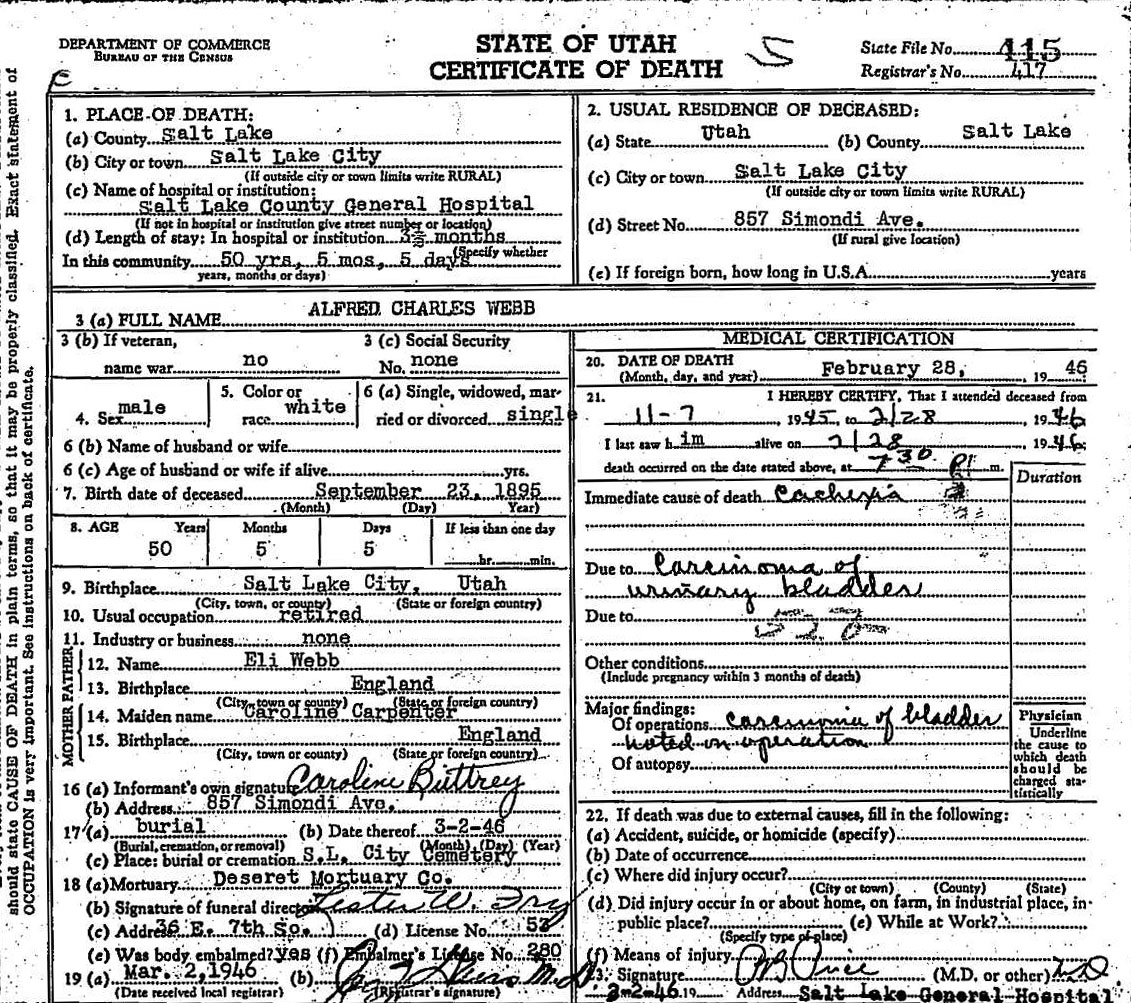 DEPARTMENT OF COMMERCE
BUREAU OF THE CENSUS
STATE OF UTAH
CERTIFICATE OF DEATH
State File No. 415
Registrar's No. 417
should state CAUSE OF DEATH in plain terms, so that it may be properly classified. Exact statement of
OCCUPATION is very important. See instructions on back of certificate.
1. PLACE OF DEATH:
(a) County Salt Lake
(b) City or town Salt Lake City
(If outside city or town limits write RURAL)
(c) Name of hospital or institution:
Salt Lake County General Hospital
(If not in hospital or institution give street number or location)
(d) Length of stay: In hospital or institution months
(Specify whether
In this community 50 yrs, 5 mos, 5 days
years, months or days)
2. USUAL RESIDENCE OF DECEASED:
(a) State Utah (b) County Salt Lake
(c) City or town Salt Lake City
(If outside city or town limits write RURAL)
(d) Street No. 857 Simondi Ave.
(If rural give location)
(e) If foreign born, how long in U.S.A. years
3 (a) FULL NAME ALFRED CHARLES WEBB
3 (b) If veteran,
name war no
3 (c) Social Security
No. none
4. Sex male
5. Color or
race white
6 (a) Single, widowed, mar-
ried or divorced single
6 (b) Name of husband or wife
6 (c) Age of husband or wife if alive yrs.
7. Birth date of deceased September 23, 1895
(Month) (Day) Year)
8. AGE Years Months Days If less than one day
50 5 5 hr. min.
9. Birthplace Salt Lake City, Utah
(City, town, or county) (State or foreign country)
10. Usual occupation retired
11. Industry or business none
FATHER
12. Name Eli Webb
13. Birthplace England
(City, town or county) (State or foreign country)
MOTHER
14. Maiden name Caroline Carpenter
15. Birthplace England
(City, town or county) (State or foreign country)
16 (a) Informant's own signature Caroline Buttrey
(b) Address 857 Simondi Ave.
17 (a) burial (b) Date thereof 3-2-46
(Burial, cremation, or removal) (Month) (Day) (Year)
(c) Place: burial or cremation S.L. City Cemetery
18 (a) Mortuary Deseret Mortuary Co.
(b) Signature of funeral director Lester W. Fry
(c) Address 36 E. 7th So. (d) License No. 53
(e) Was body embalmed? yes (f) Embalmer's License No. 280
19 (a) Mar. 2, 1946 (b) M.D.
(Date received local registrar) (Registrar's signature)
MEDICAL CERTIFICATION
20. DATE OF DEATH
(Month, day, and year) February 28, 19 46
21. I HEREBY CERTIFY, That I attended deceased from
11-7 1945, to 2/28 1946
I last saw him alive on 2/28 1946
death occurred on the date stated above, at 7 30 P m.
Duration
Immediate cause of death Cachexia
Due to Carcinoma of
urinary bladder
Due to
Other conditions
(Include pregnancy within 3 months of death)
Major findings:
Of operations carcinoma of bladder
noted on operation
Of autopsy
Physician
Underline
the cause to
which death
should be
charged sta-
tistically
22. If death was due to external causes, fill in the following:
(a) Accident, suicide, or homicide (specify)
(b) Date of occurrence
(c) Where did injury occur?
(City or town) (County) (State)
(d) Did injury occur in or about home, on farm, in industrial place, in
public place? (e) While at Work?
(Specify type of place)
(f) Means of injury
23. Signature Price (M.D. or other) M.D.
3-2-46 19 Address Salt Lake General Hospital